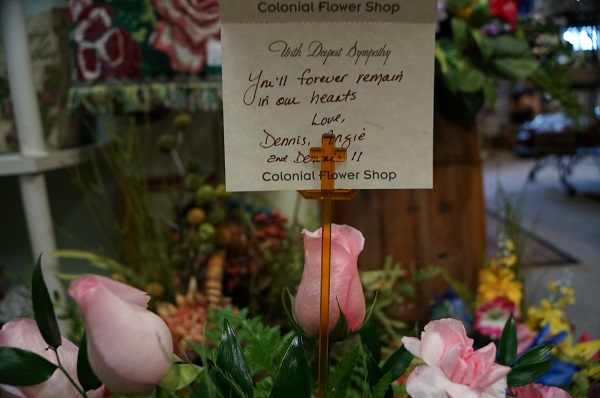 Colonial Flower Shop
With Deepest Sympathy
You'll forever remain
in our hearts
Love,
Dennis, Angie
and Dennis II
Colonial Flower Shop